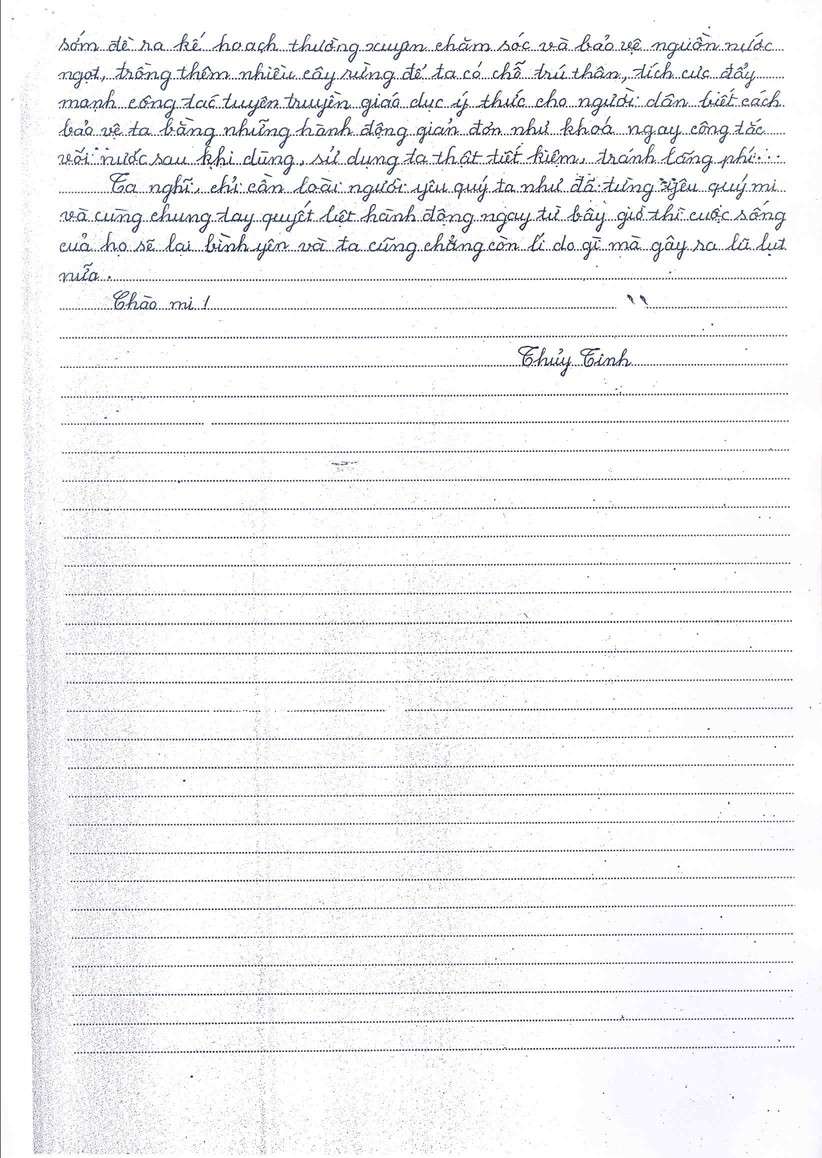 sớm đề ra kế hoạch thường xuyên chăm sóc và bảo vệ nguồn nước
ngọt, trồng thêm nhiều cây rừng để ta có chỗ trú thân, tích cực đẩy
mạnh công tác tuyên truyền giáo dục ý thức cho người dân biết cách
bảo vệ ta bằng những hành động giản đơn như khoá ngay công tắc
vòi nước sau khi dùng, sử dụng ta thật tiết kiệm, tránh lãng phí...
Ta nghĩ, chỉ cần loài người yêu quý ta như đã từng yêu quý mi
và cùng chung tay quyết liệt hành động ngay từ bây giờ thì cuộc sống
của họ sẽ lại bình yên và ta cũng chẳng còn lí do gì mà gây ra lũ lụt
nữa.
Chào mi!
Thủy Tinh